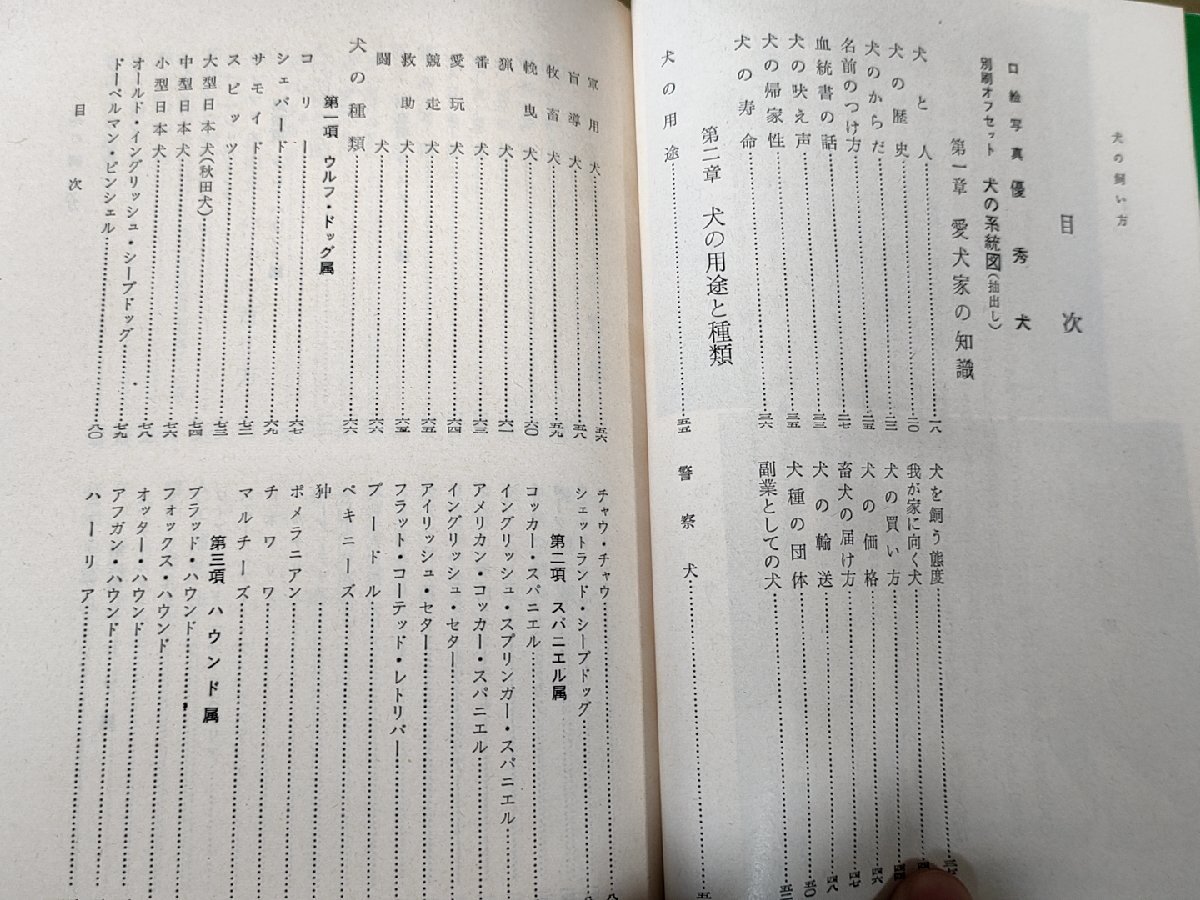 犬の飼い方
目次
口絵写真 優秀犬
別刷オフセット 犬の系統図(抽出し)
第一章 愛犬家の知識
犬と人……一八
犬の歴史……二〇
犬のからだ……
名前のつけ方……二五
血統書の話……二七
犬の吠え声……三三
犬の帰家性……三五
犬の寿命……三六
犬を飼う態度……
我が家に向く犬……
犬の買い方……四四
犬の価格……四六
畜犬の届け方……四七
犬の輸送……四八
犬種の団体……五〇
副業としての犬……五二
第二章 犬の用途と種類
犬の用途……五五
警察犬……
軍用犬……五六
盲導犬……五八
牧畜犬……五九
輓曳犬……六〇
猟犬……六一
番犬……六三
愛玩犬……六四
競走犬……六五
救助犬……六五
闘犬……六六
犬の種類……六六
第一項 ウルフ・ドッグ属
コリー……六七
シェパード……六九
サモイド……七二
スピッツ……七三
大型日本犬(秋田犬)……七四
中型日本犬……七六
小型日本犬……七八
オールド・イングリッシュ・シープドッグ……七九
ドーベルマン・ピンシェル……八〇
チャウ・チャウ……
シェットランド・シープドッグ……
第二項 スパニエル属
コッカー・スパニエル……
イングリッシュ・スプリンガー・スパニエル……
アメリカン・コッカー・スパニエル……
イングリッシュ・セター……
アイリッシュ・セター……
フラット・コーテッド・レトリバー……
プードル……
ペキニーズ……
狆……
ポメラニアン……
チワワ……
マルチーズ……
第三項 ハウンド属
ブラッド・ハウンド……
フォックス・ハウンド……
オッター・ハウンド……
アフガン・ハウンド……
ハーリア……
目次